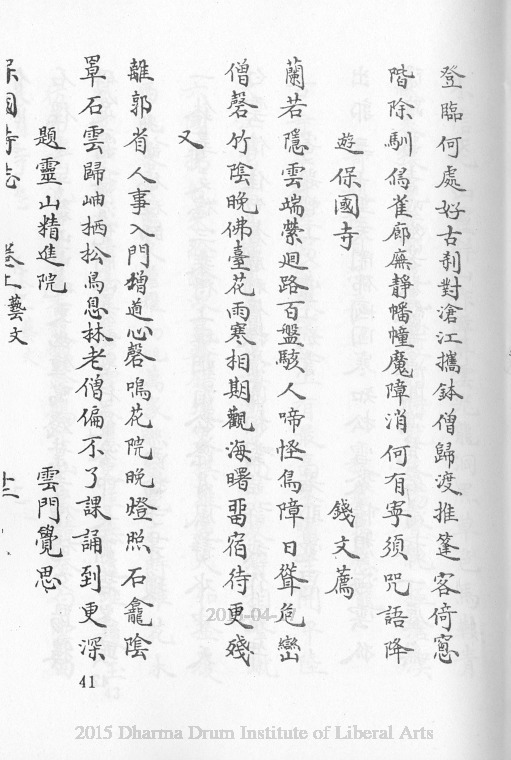 登臨何處好古刹對滄江攜鉢僧歸渡推篷客倚窻
階除馴鴿雀廊廡靜幡幢魔障消何有寧須咒語降
遊保國寺 錢文薦
蘭若隱雲端縈迴路百盤駭人啼怪鳥障日聳危巒
僧磬竹陰晚佛臺花雨寒相期觀海曙畱宿待更殘
又
離郭省人事入門增道心磬鳴花院晚燈照石龕陰
罩石雲歸岫栖松鳥息林老僧偏不了課誦到更深
題靈山精進院 雲門覺思
保國寺志 卷上藝文 十二
41
2015 Dharma Drum Institute of Liberal Arts